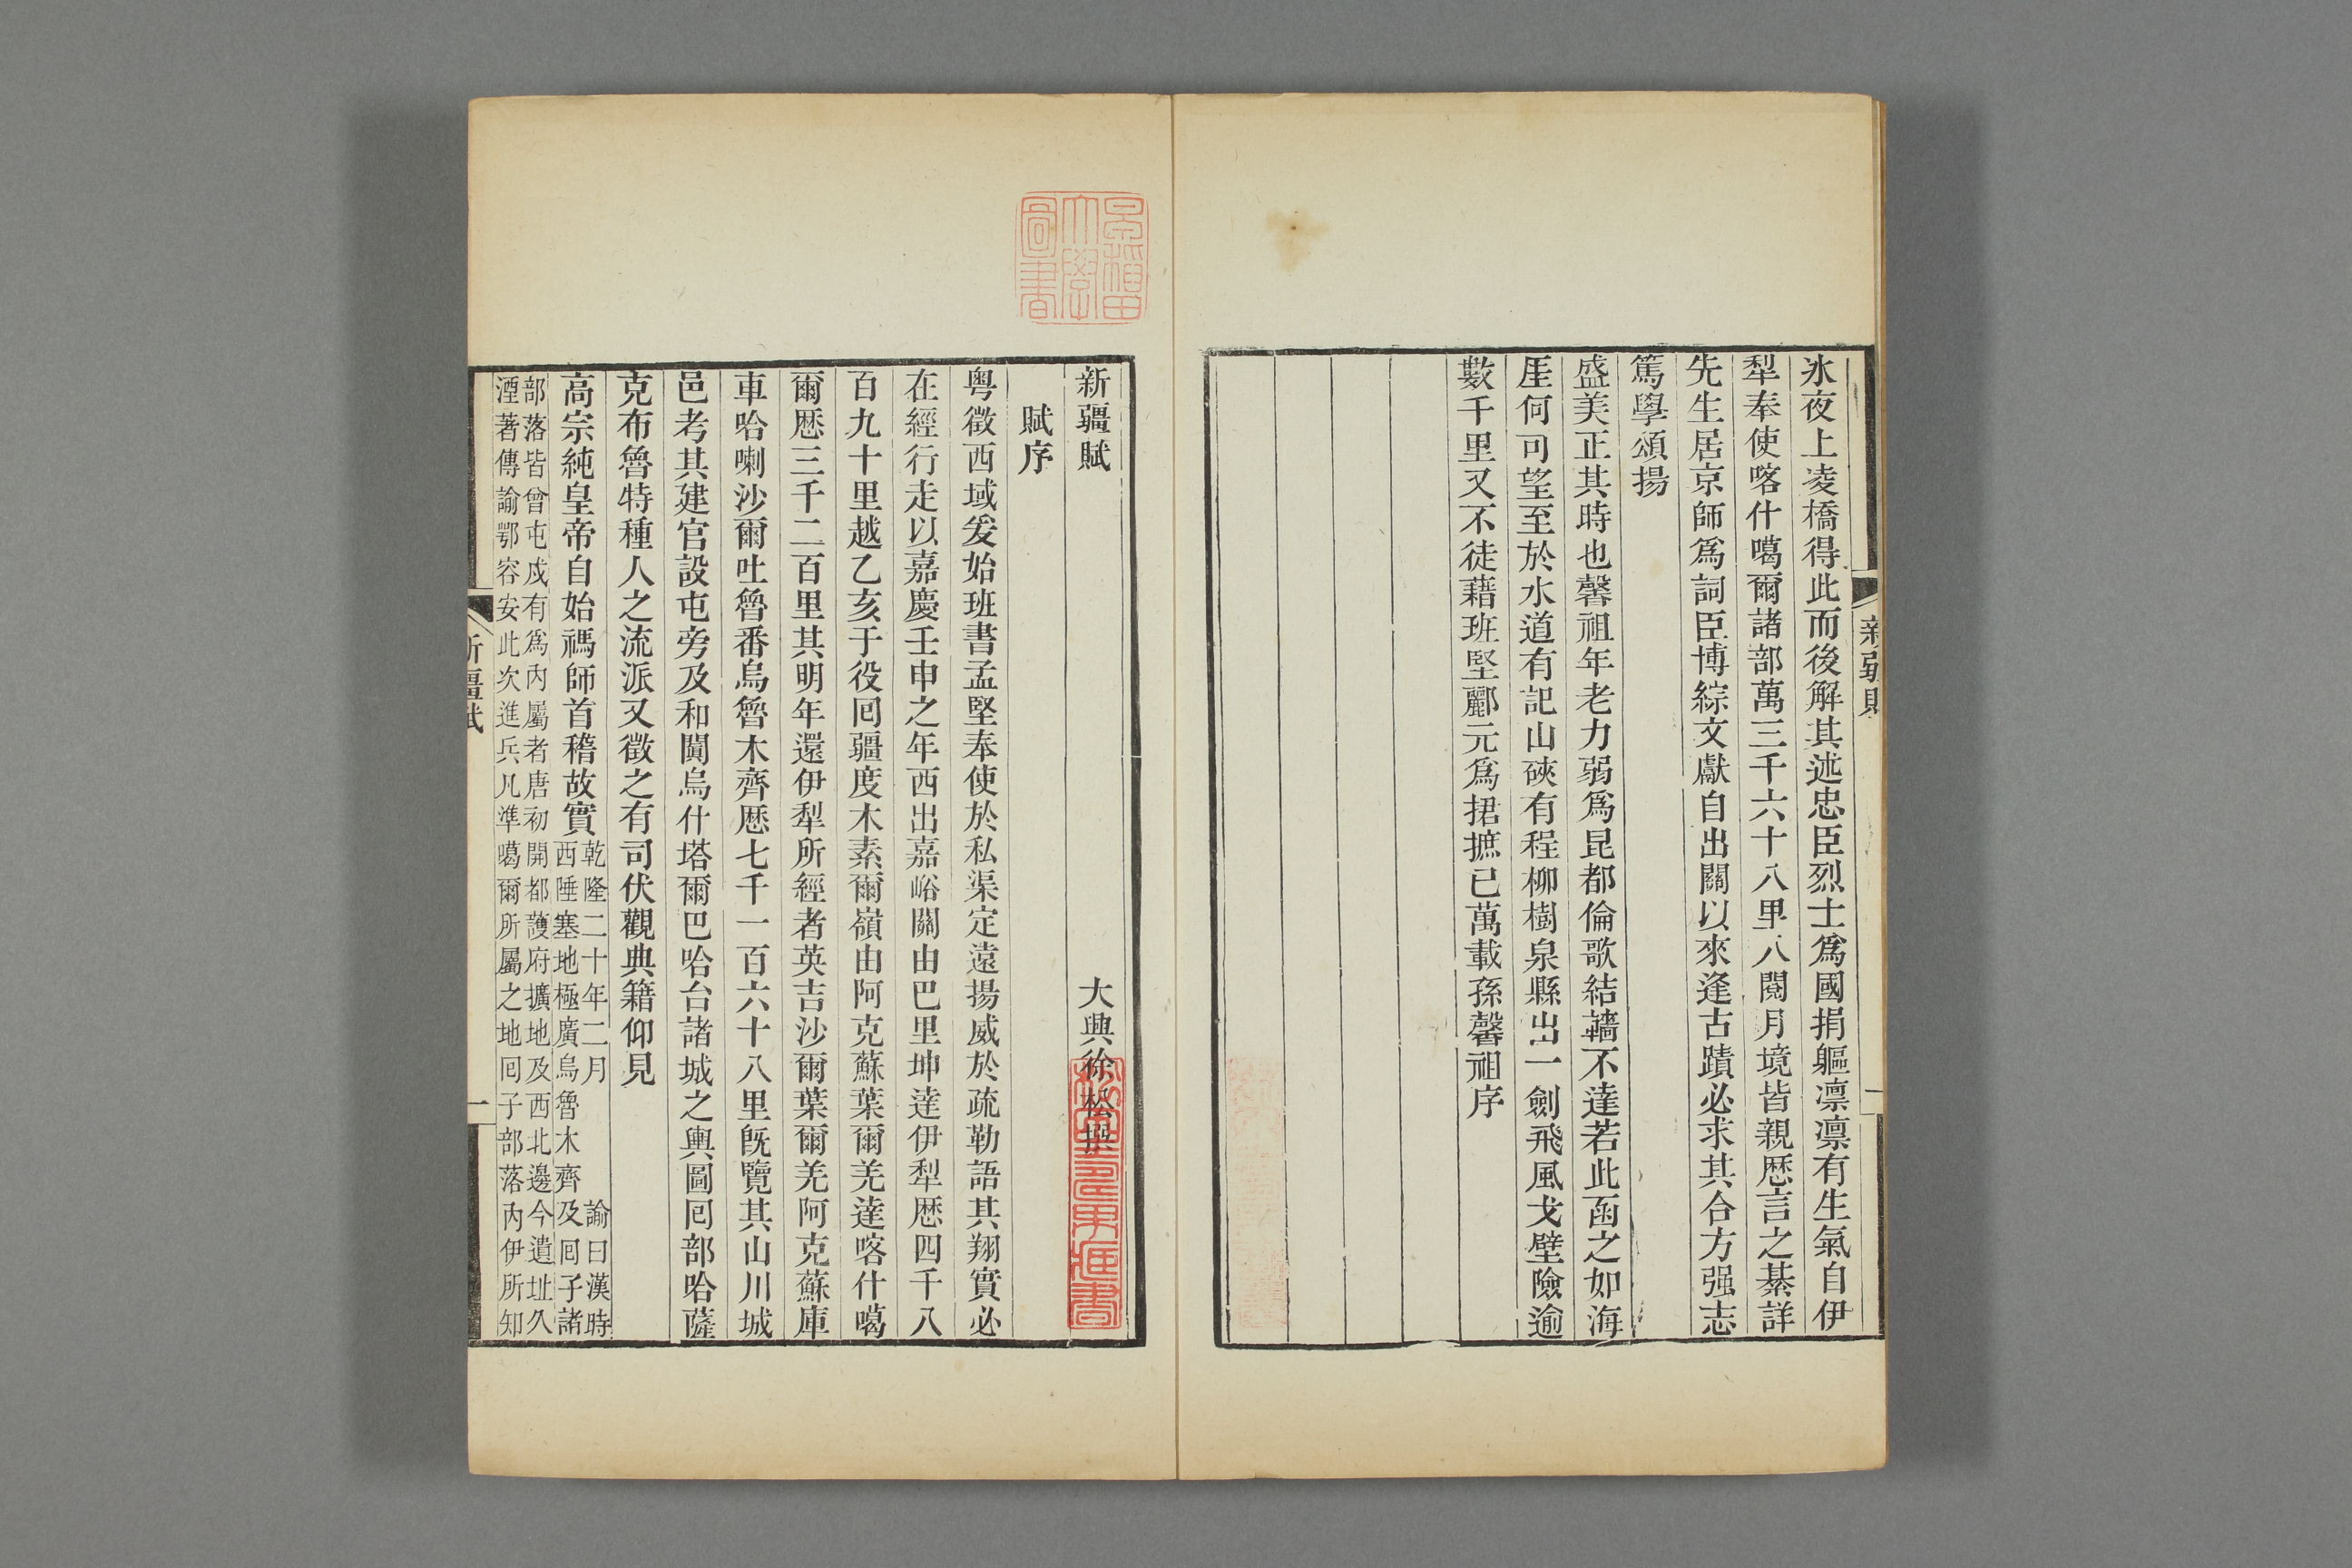 氷夜上凌橋得此而後解其述忠臣烈士爲國捐軀凛凛有生氣自伊
犁奉使喀什噶爾諸部萬三千六十八里八閱月境皆親歷言之綦詳
先生居京師爲詞臣博綜文獻自出關以來逢古蹟必求其合方强志
篤學頌揚
盛美正其時也馨祖年老力弱爲昆都倫歌結轖不達若此函之如海
厓何可望至於水道有記山硤有程柳樹泉縣出一劍飛風戈壁險逾
數千里又不徒藉班堅酈元爲捃摭已萬載孫馨祖序
新疆賦
一
早稻田大學圖書
新疆賦
大興徐松撰
賦序
粤徵西域爰始班書孟堅奉使於私渠定遠揚威於疏勒語其翔實必
在經行走以嘉慶壬申之年西出嘉峪關由巴里坤達伊犁歷四千八
百九十里越乙亥于役回疆度木素爾嶺由阿克蘇葉爾羌達喀什噶
爾歷三千二百里其明年還伊犁所經者英吉沙爾葉爾羌阿克蘇庫
車哈喇沙爾吐魯番烏魯木齊歷七千一百六十八里旣覽其山川城
邑考其建官設屯旁及和闐烏什塔爾巴哈台諸城之輿圖囘部哈薩
克布魯特種人之流派又徵之有司伏觀典籍仰見
高宗純皇帝自始禡師首稽故實
乾隆二十年二月 諭曰漢時
西陲塞地極廣烏魯木齊及囘子諸
部落皆曾屯戍有爲內屬者唐初開都護府擴地及西北邊今遺址久
湮著傳諭鄂容安此次進兵凡準噶爾所屬之地囘子部落內伊所知
新疆賦
一